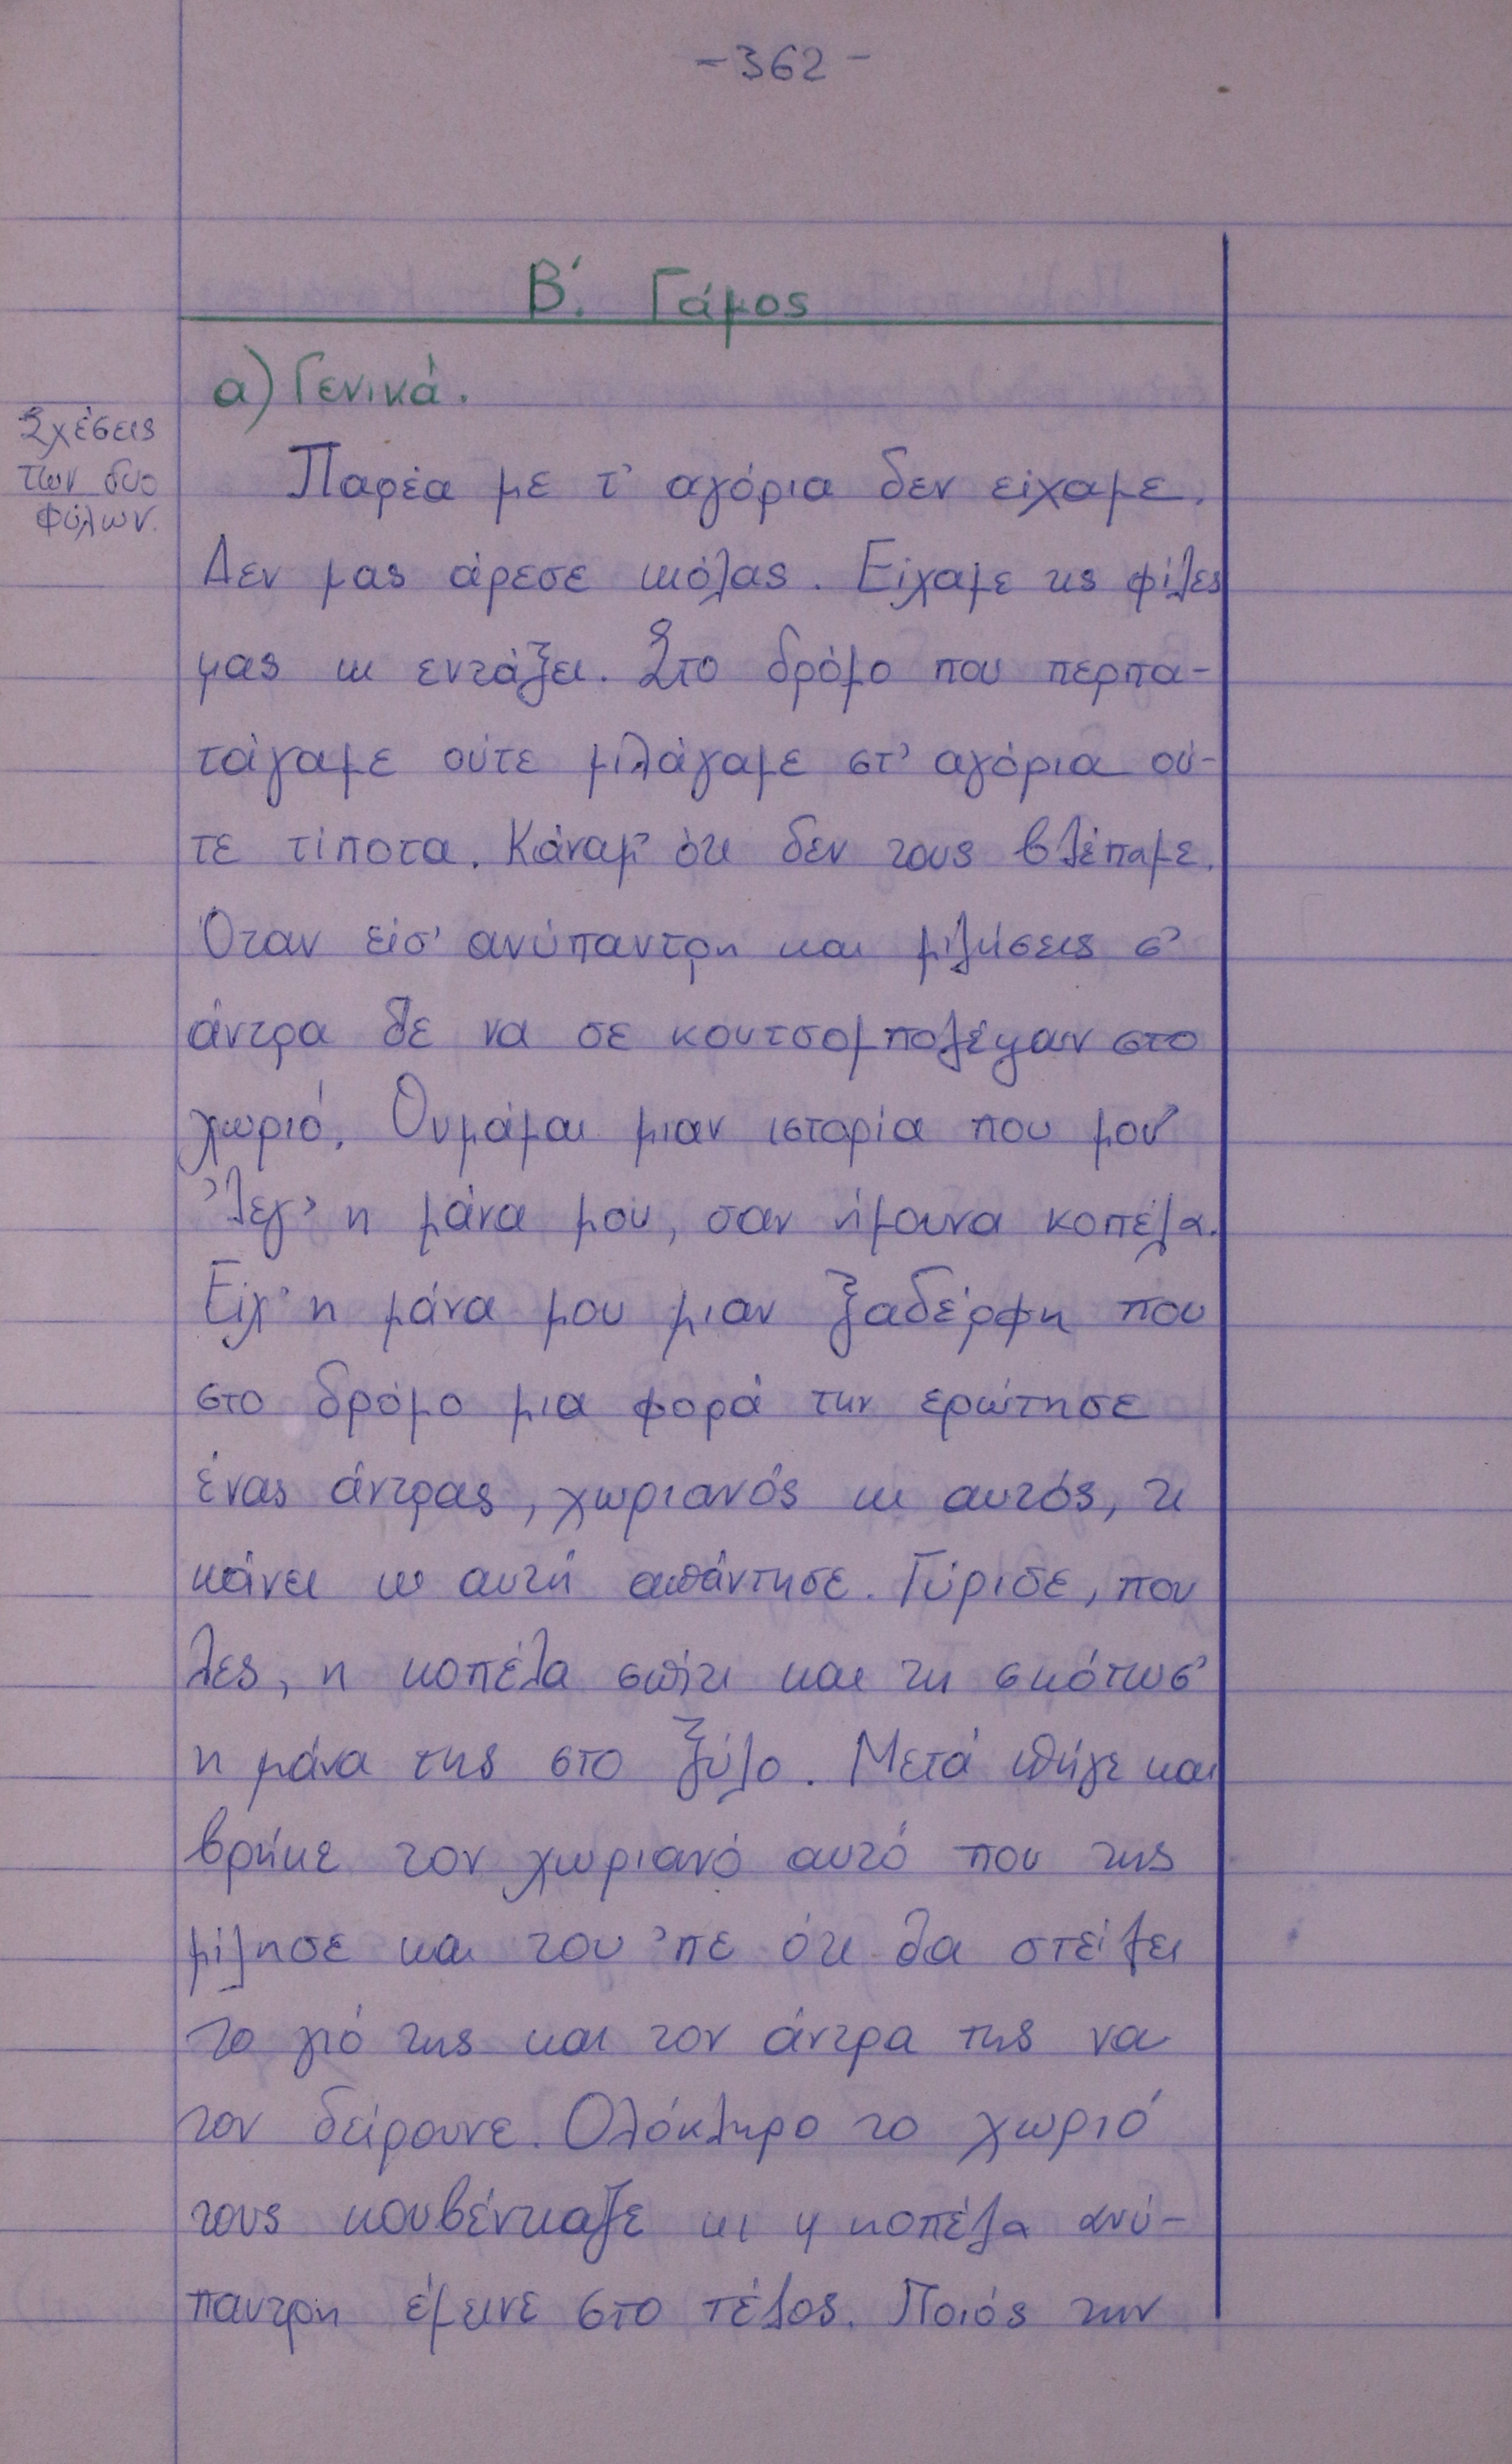 -362-
Β΄. Γάμος
α) Γενικά.
Σχέσεις
των δυο
φύλων.
Παρέα με τ' αγόρια δεν είχαμε.
Δεν μας άρεσε κιόλας. Είχαμε τις φίλες
μας κι εντάξει. Στο δρόμο που περπα-
τάγαμε ούτε μιλάγαμε στ' αγόρια ού-
τε τίποτα. Κάναμ' ότι δεν τους βλέπαμε.
Όταν είσ' ανύπαντρη και μιλήσεις σ'
άντρα δε να σε κουτσομπολέψαν στο
χωριό. Θυμάμαι μιαν ιστορία που μου
'λεγ' η μάνα μου, σαν ήμουνα κοπέλα.
Είχ' η μάνα μου μιαν ξαδέρφη που
στο δρόμο μια φορά την ερώτησε
ένας άντρας, χωριανός κι αυτός, τι
κάνει κι αυτή απάντησε. Γύρισε, που
λες, η κοπέλα σπίτι και τη σκότωσ'
η μάνα της στο ξύλο. Μετά πήγε και
βρήκε τον χωριανό αυτό που της
μίλησε και του 'πε ότι θα στείλει
το γιό της και τον άντρα της να
τον δείρουνε. Ολόκληρο το χωριό
τους κουβέντιαζε κι η κοπέλα ανύ-
παντρη έμεινε στο τέλος. Ποιός την